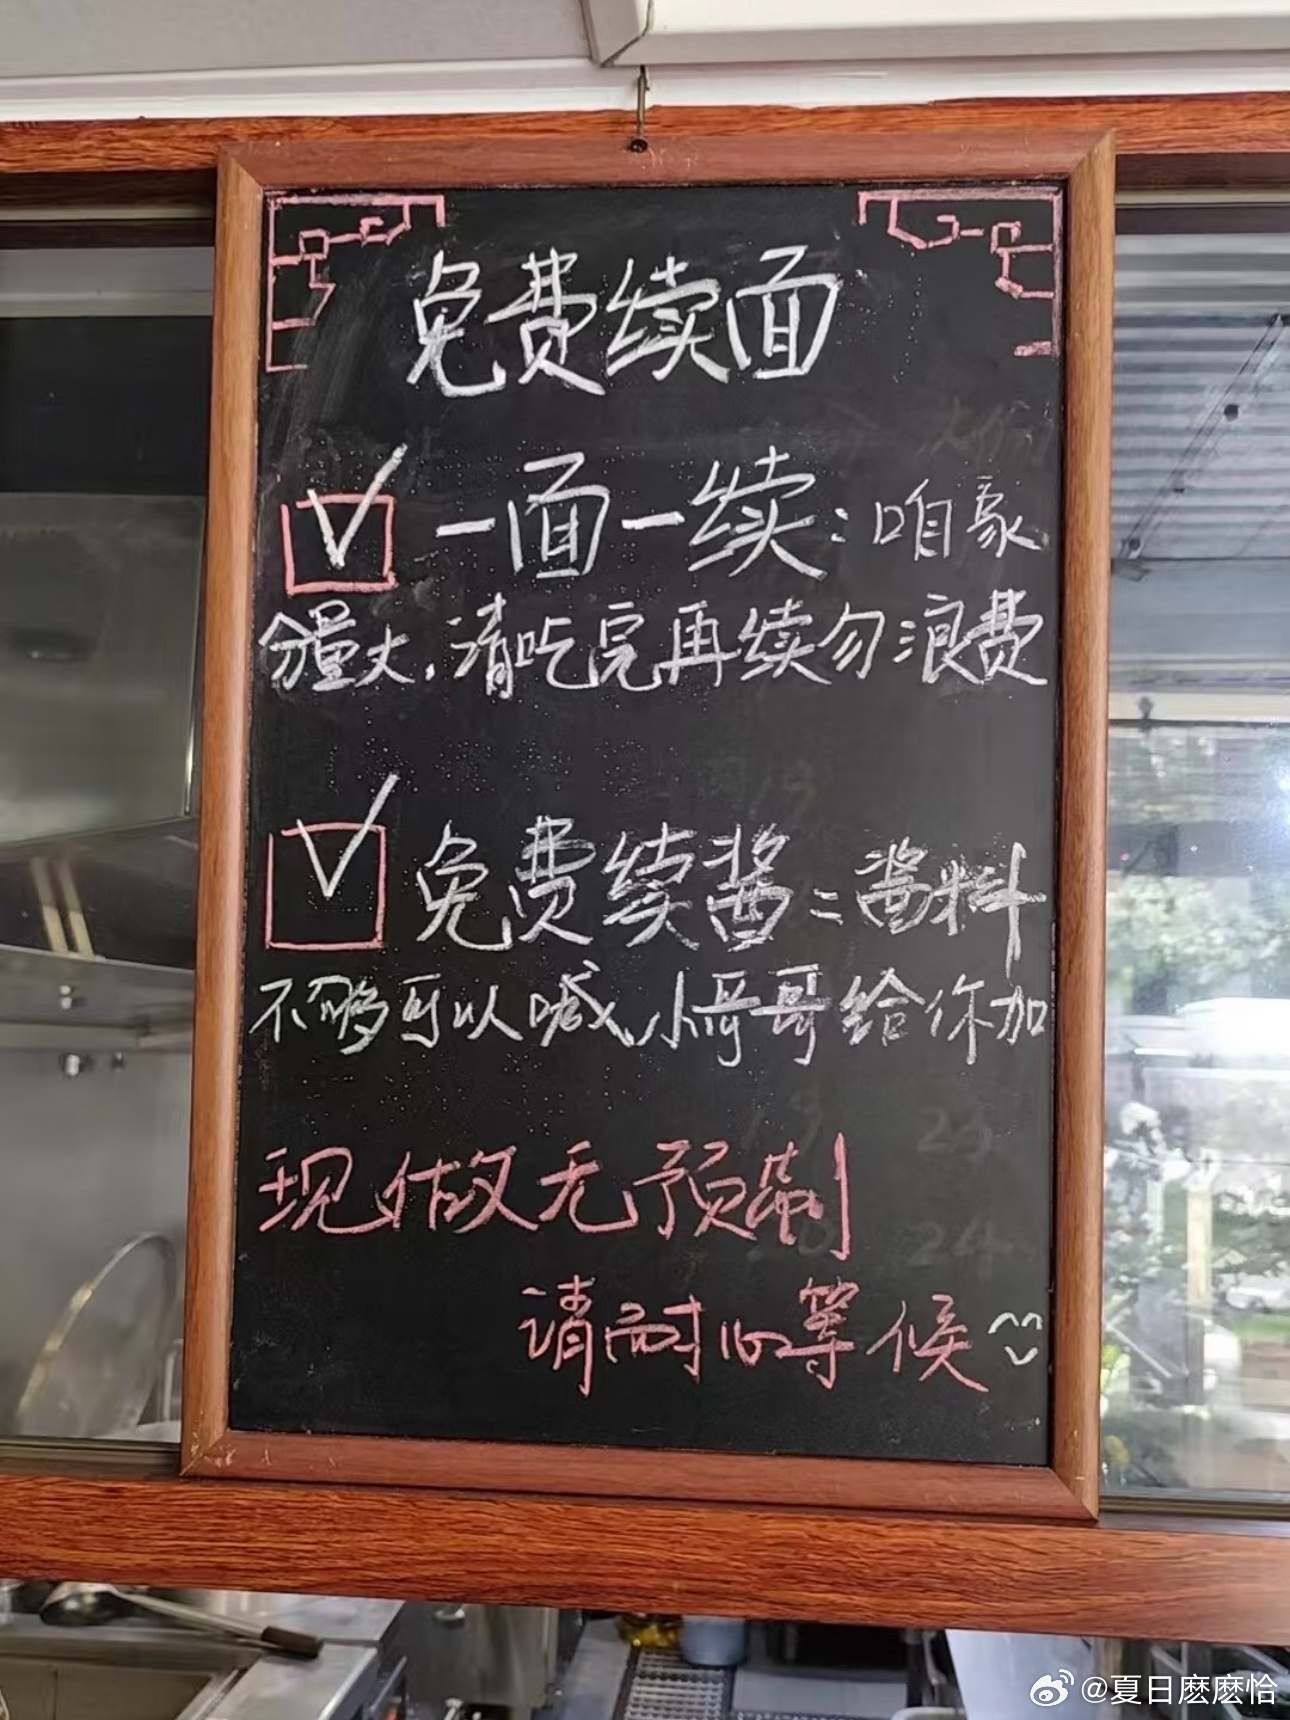 免费续面
一面一续：咱家
分量大，请吃完再续勿浪费
免费续酱：酱料
不够可以喊小哥哥给你加
现做无预制
请耐心等候
@夏日麽麽恰